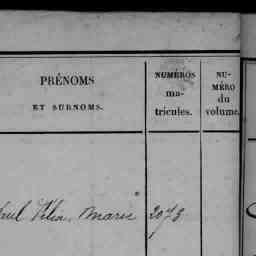 PRÉNOMS
ET SURNOMS.
NUMÉROS
ma-
tricules.
NU-
MÉRO
du
volume.
Marie 2073